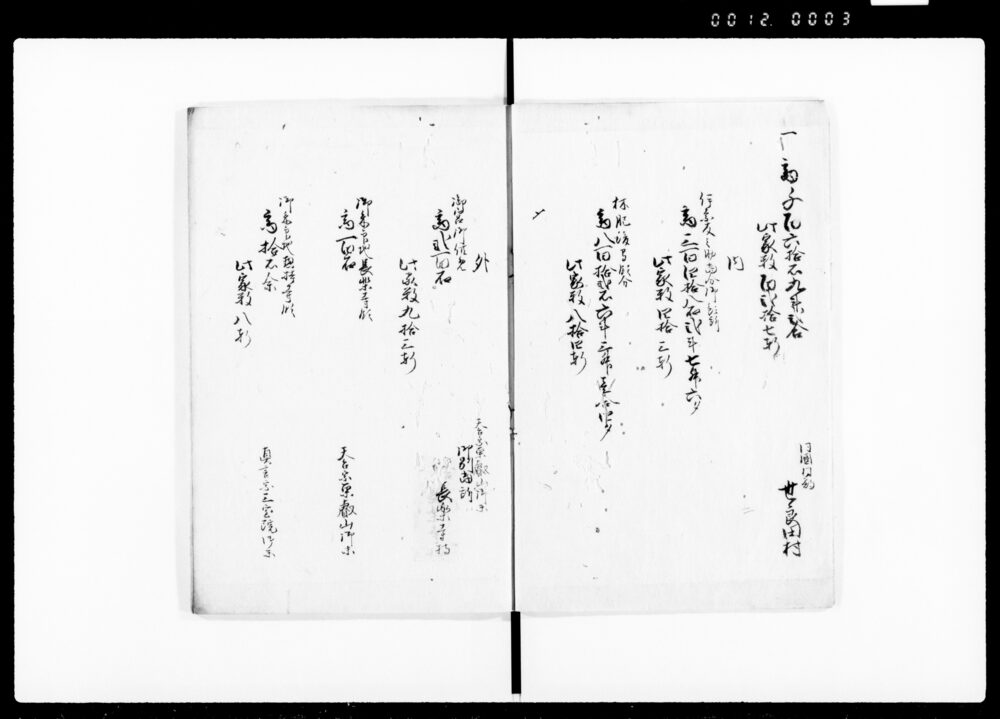 0012. 0003
一高千百六拾石九斗弐合
此家数百弐拾七軒
同国同郡
世良田村
内
高三百四拾八石弐斗七升六夕
此家数四拾三軒
林肥後守知行
高八百拾弐石六斗三升壱合四夕
此家数八拾四軒
外
御宮御供免
高弐百石
此家数九拾三軒
天台宗東叡山御末
御別当所
長楽寺持
御朱印地長楽寺領
高百石
天台宗東叡山御末
御朱印地惣持寺領
高拾石余
此家数八軒
真言宗三宝院御末